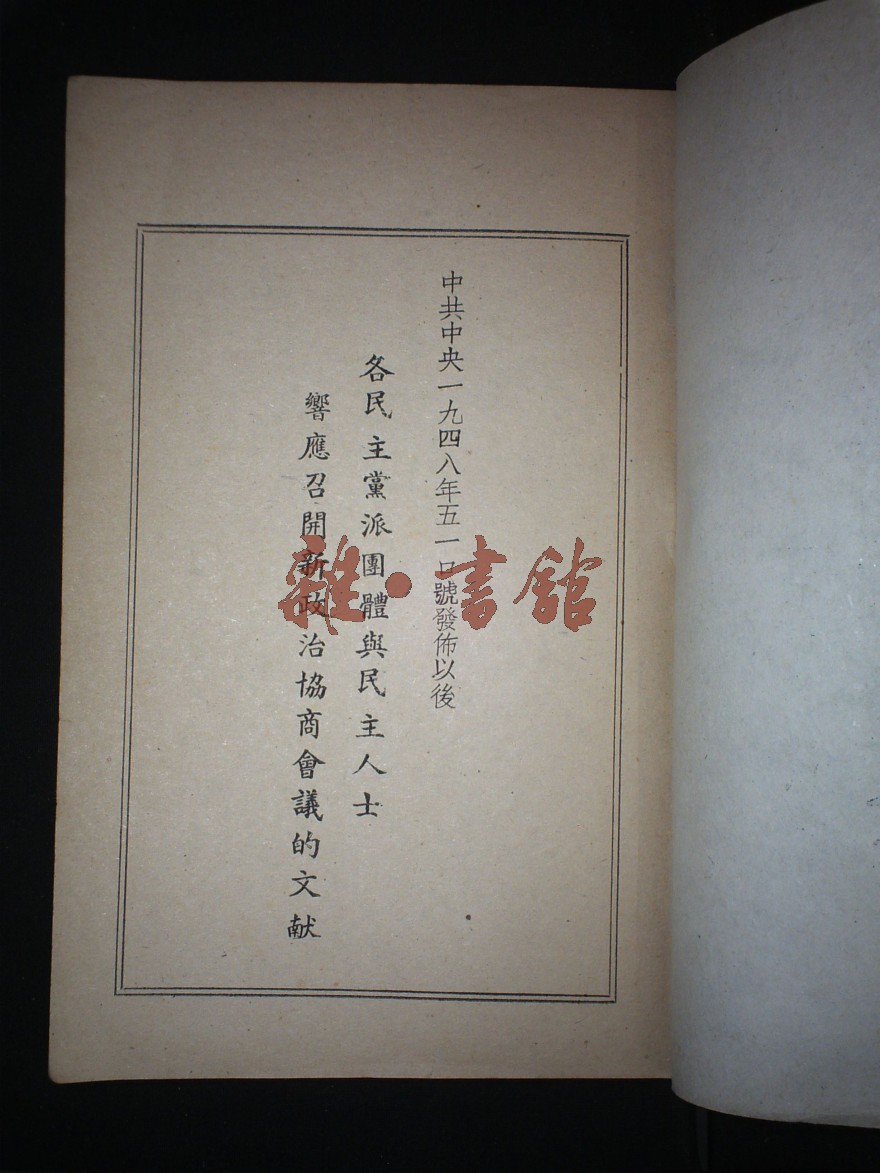 中共中央一九四八年五一口號發佈以後
各民主黨派團體與民主人士
響應召開新政治協商會議的文献
雜·書館